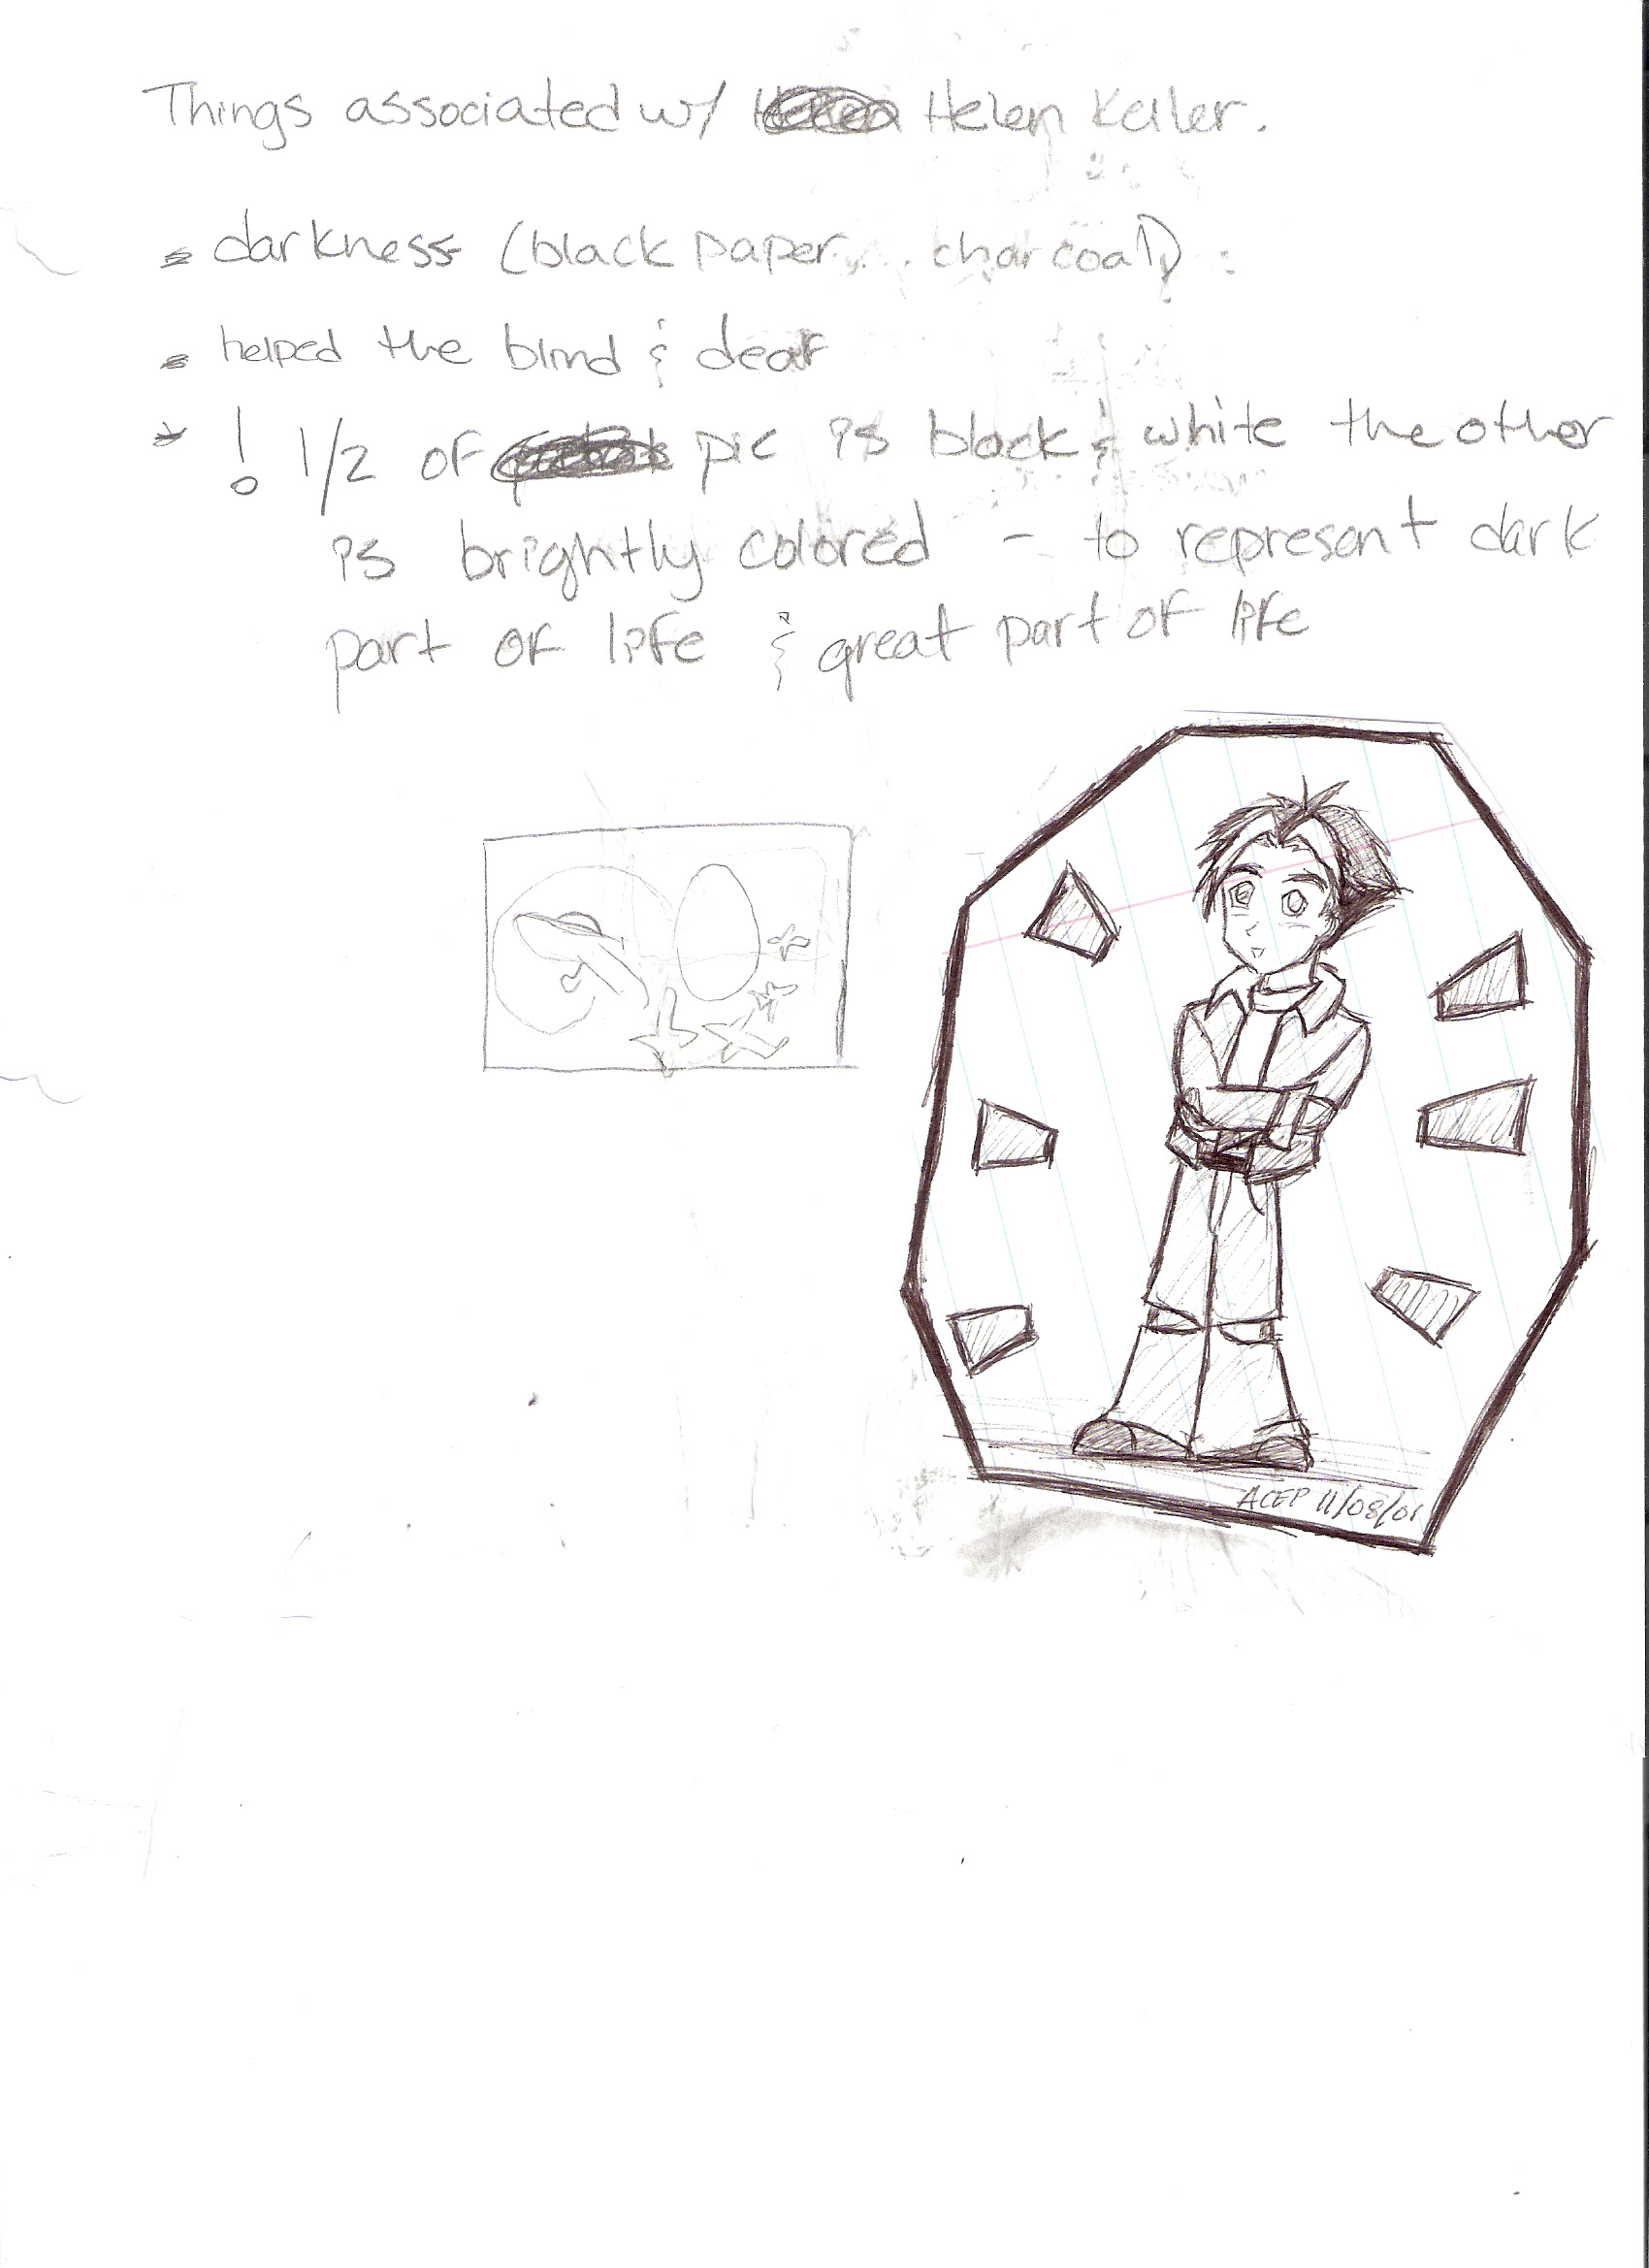 Things associated w/ Helen Keller.
darkness (black paper... charcoal)
helped the blind & deaf
! 1/2 of pic is black & white the other
is brightly colored - to represent dark
part of life & great part of life
ACEP 11/08/01